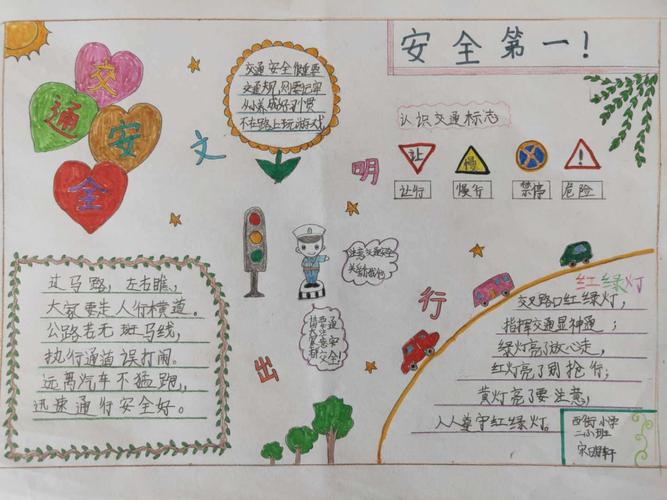 交通安全
安全第一!
交通安全很重要
交通规则要记牢
从小养成好习惯
不在路上玩游戏
文明出行
认识交通标志
让
慢
让行
慢行
禁停
危险
注意交通安全
关系你我他
过马路,左右瞧,
大家要走人行横道。
公路若无斑马线,
执行通道误打闹。
远离汽车不猛跑,
迅速通行安全好。
红绿灯
交叉路口红绿灯,
指挥交通显神通;
绿灯亮了放心走,
红灯亮了别抢行;
黄灯亮了要注意,
人人遵守红绿灯。
西街小学